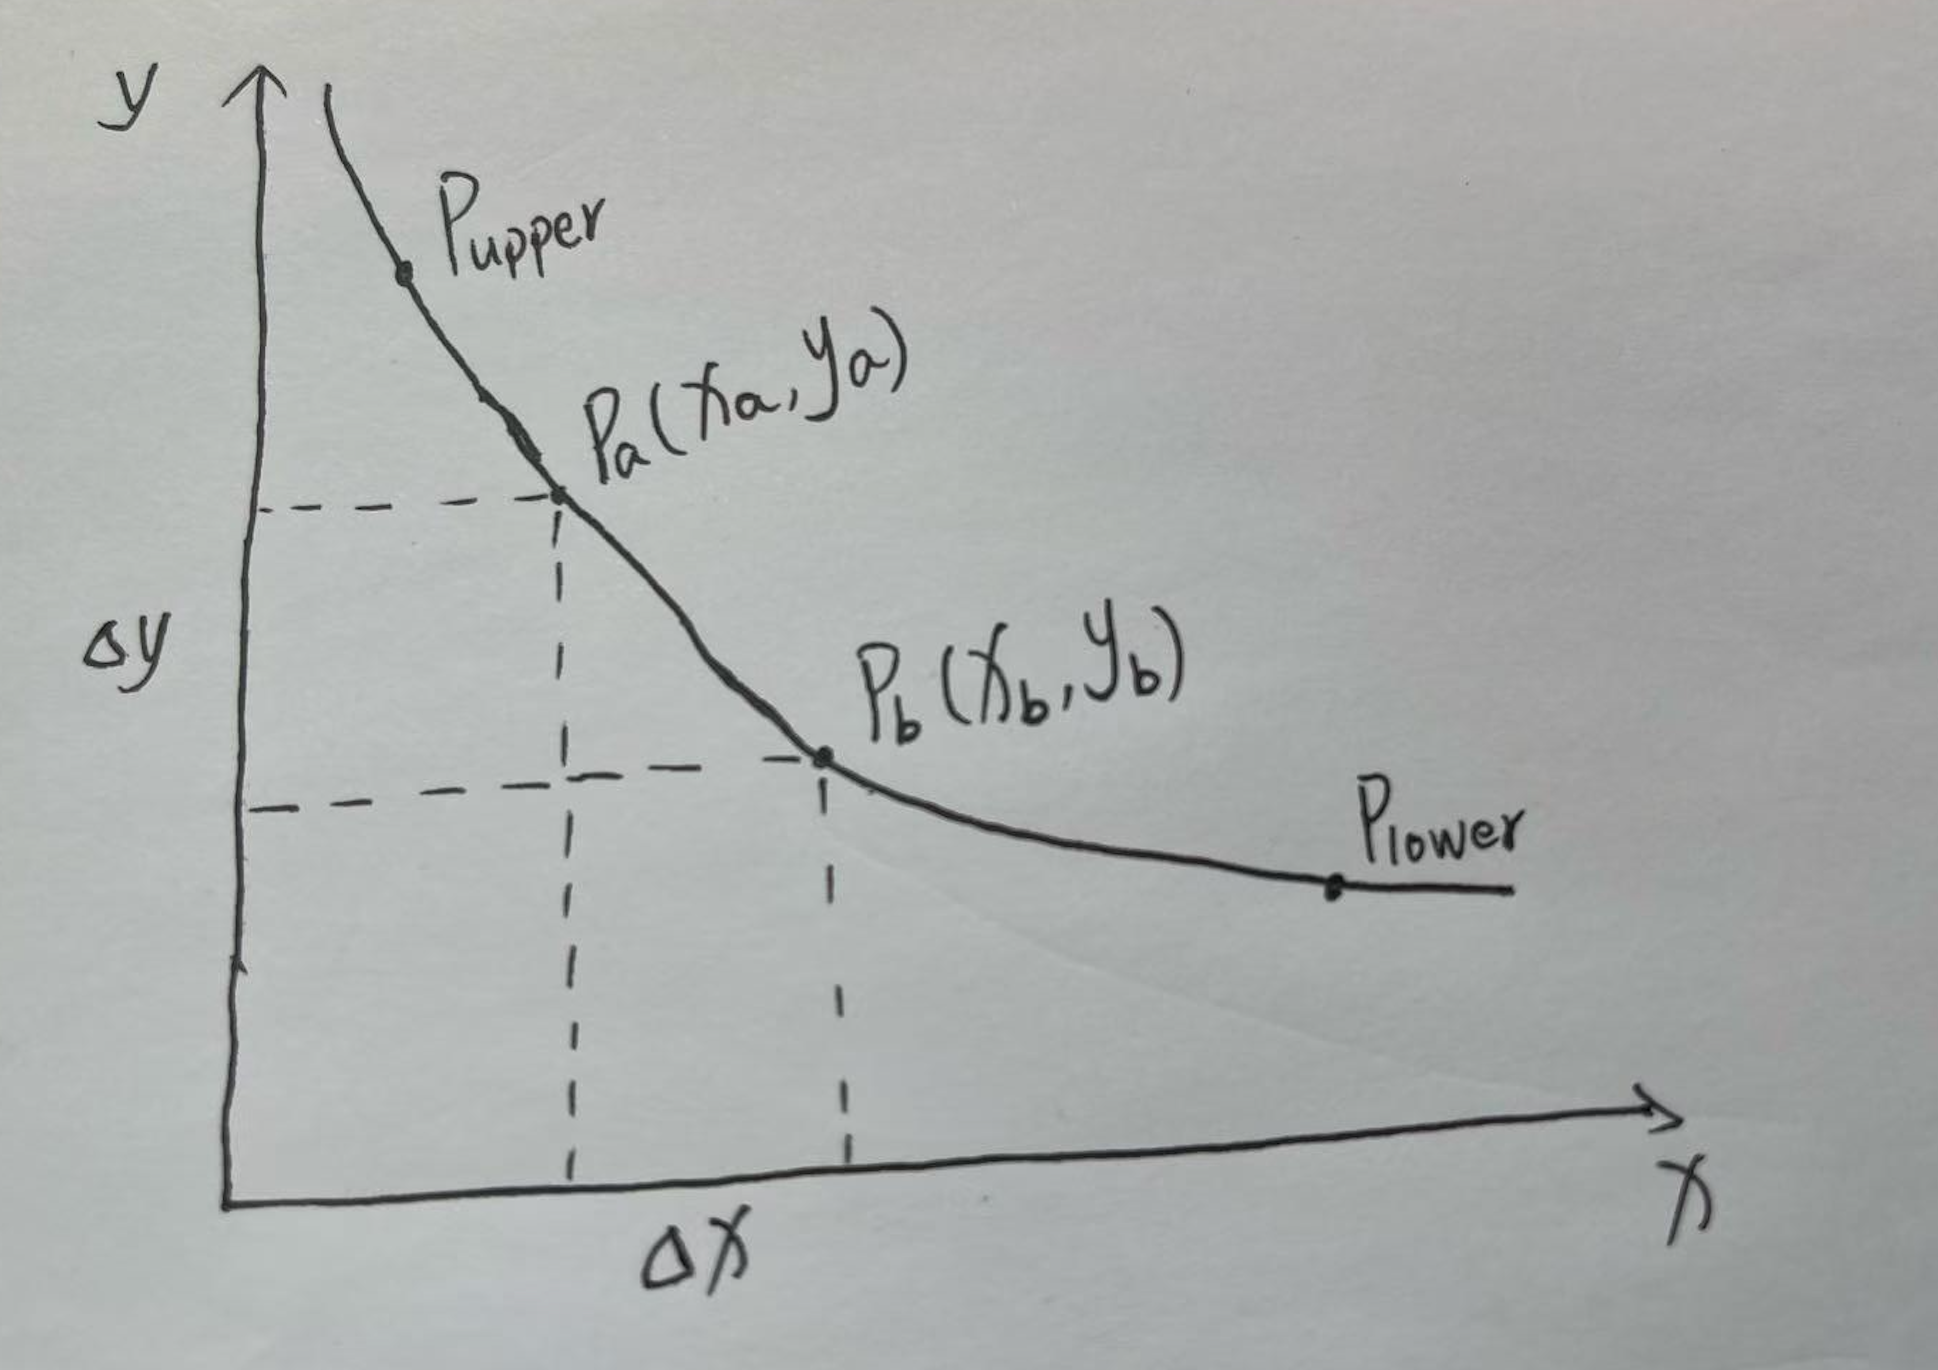 y
Pupper
Pa(xa, ya)
Δy
Pb(xb, yb)
Plower
x
Δx